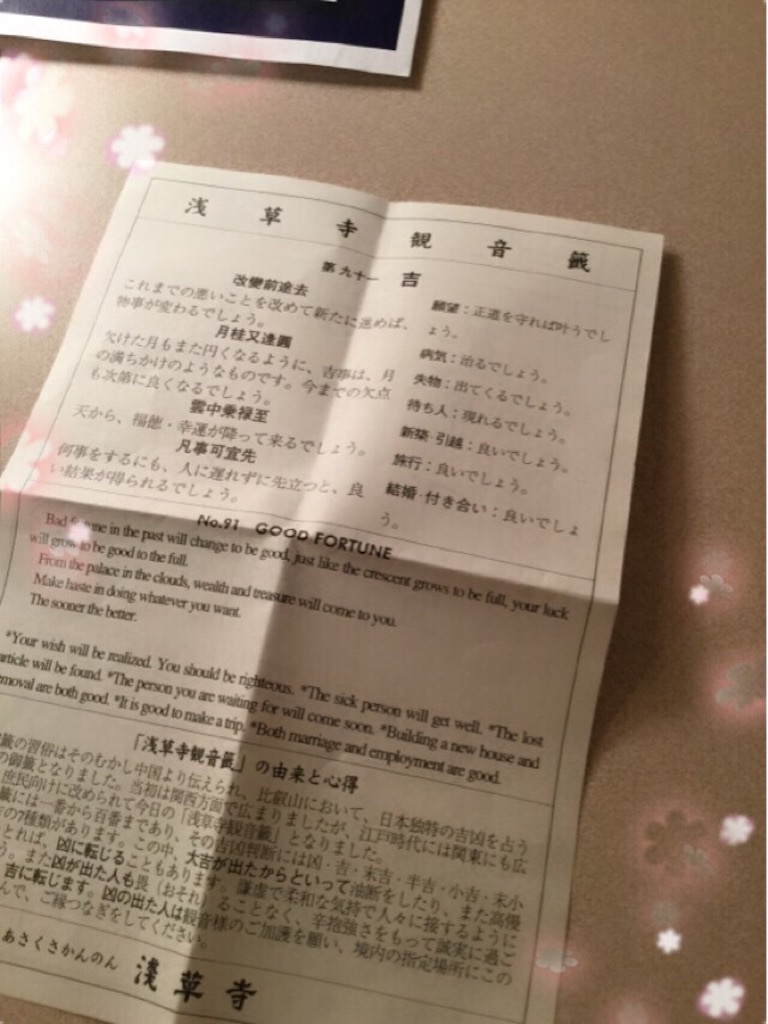 浅草寺観音籤
第九十一 吉
改變前途去
これまでの悪いことを改めて新たに進めば、
物事が変わるでしょう。
月桂又逢圓
欠けた月もまた円くなるように、吉事は、月
の満ちかけのようなものです。今までの欠点
も次第に良くなるでしょう。
雲中乗禄至
天から、福徳・幸運が降って来るでしょう。
凡事可宜先
何事をするにも、人に遅れずに先立つと、良
い結果が得られるでしょう。
願望：正道を守れば叶うでし
ょう。
病気：治るでしょう。
失物：出てくるでしょう。
待ち人：現れるでしょう。
新築・引越：良いでしょう。
旅行：良いでしょう。
結婚・付き合い：良いでしょ
う。
No.91 GOOD FORTUNE
Bad fortune in the past will change to be good, just like the crescent grows to be full, your luck
will grow to be good to the full.
From the palace in the clouds, wealth and treasure will come to you.
Make haste in doing whatever you want.
The sooner the better.
*Your wish will be realized. You should be righteous. *The sick person will get well. *The lost
article will be found. *The person you are waiting for will come soon. *Building a new house and
removal are both good. *It is good to make a trip. *Both marriage and employment are good.
「浅草寺観音籤」の由来と心得
籤の習俗はそのむかし中国より伝えられ、比叡山において、日本独特の吉凶を占う
の御籤となりました。当初は関西方面で広まりましたが、江戸時代には関東にも広
庶民向けに改められて今日の「浅草寺観音籤」となりました。
籤には一番から百番まであり、その吉凶判断には凶・吉・末吉・半吉・小吉・末小
の7種類があります。この中、大吉が出たからといって油断をしたり、また高慢
とれば、凶に転じることもあります。謙虚で柔和な気持で人々に接するように
う。また凶が出た人も畏（おそれ）ることなく、辛抱強さをもって誠実に過ご
吉に転じます。凶の出た人は観音様のご加護を願い、境内の指定場所にこの
んで、ご縁つなぎをしてください。
あさくさかんのん 淺草寺